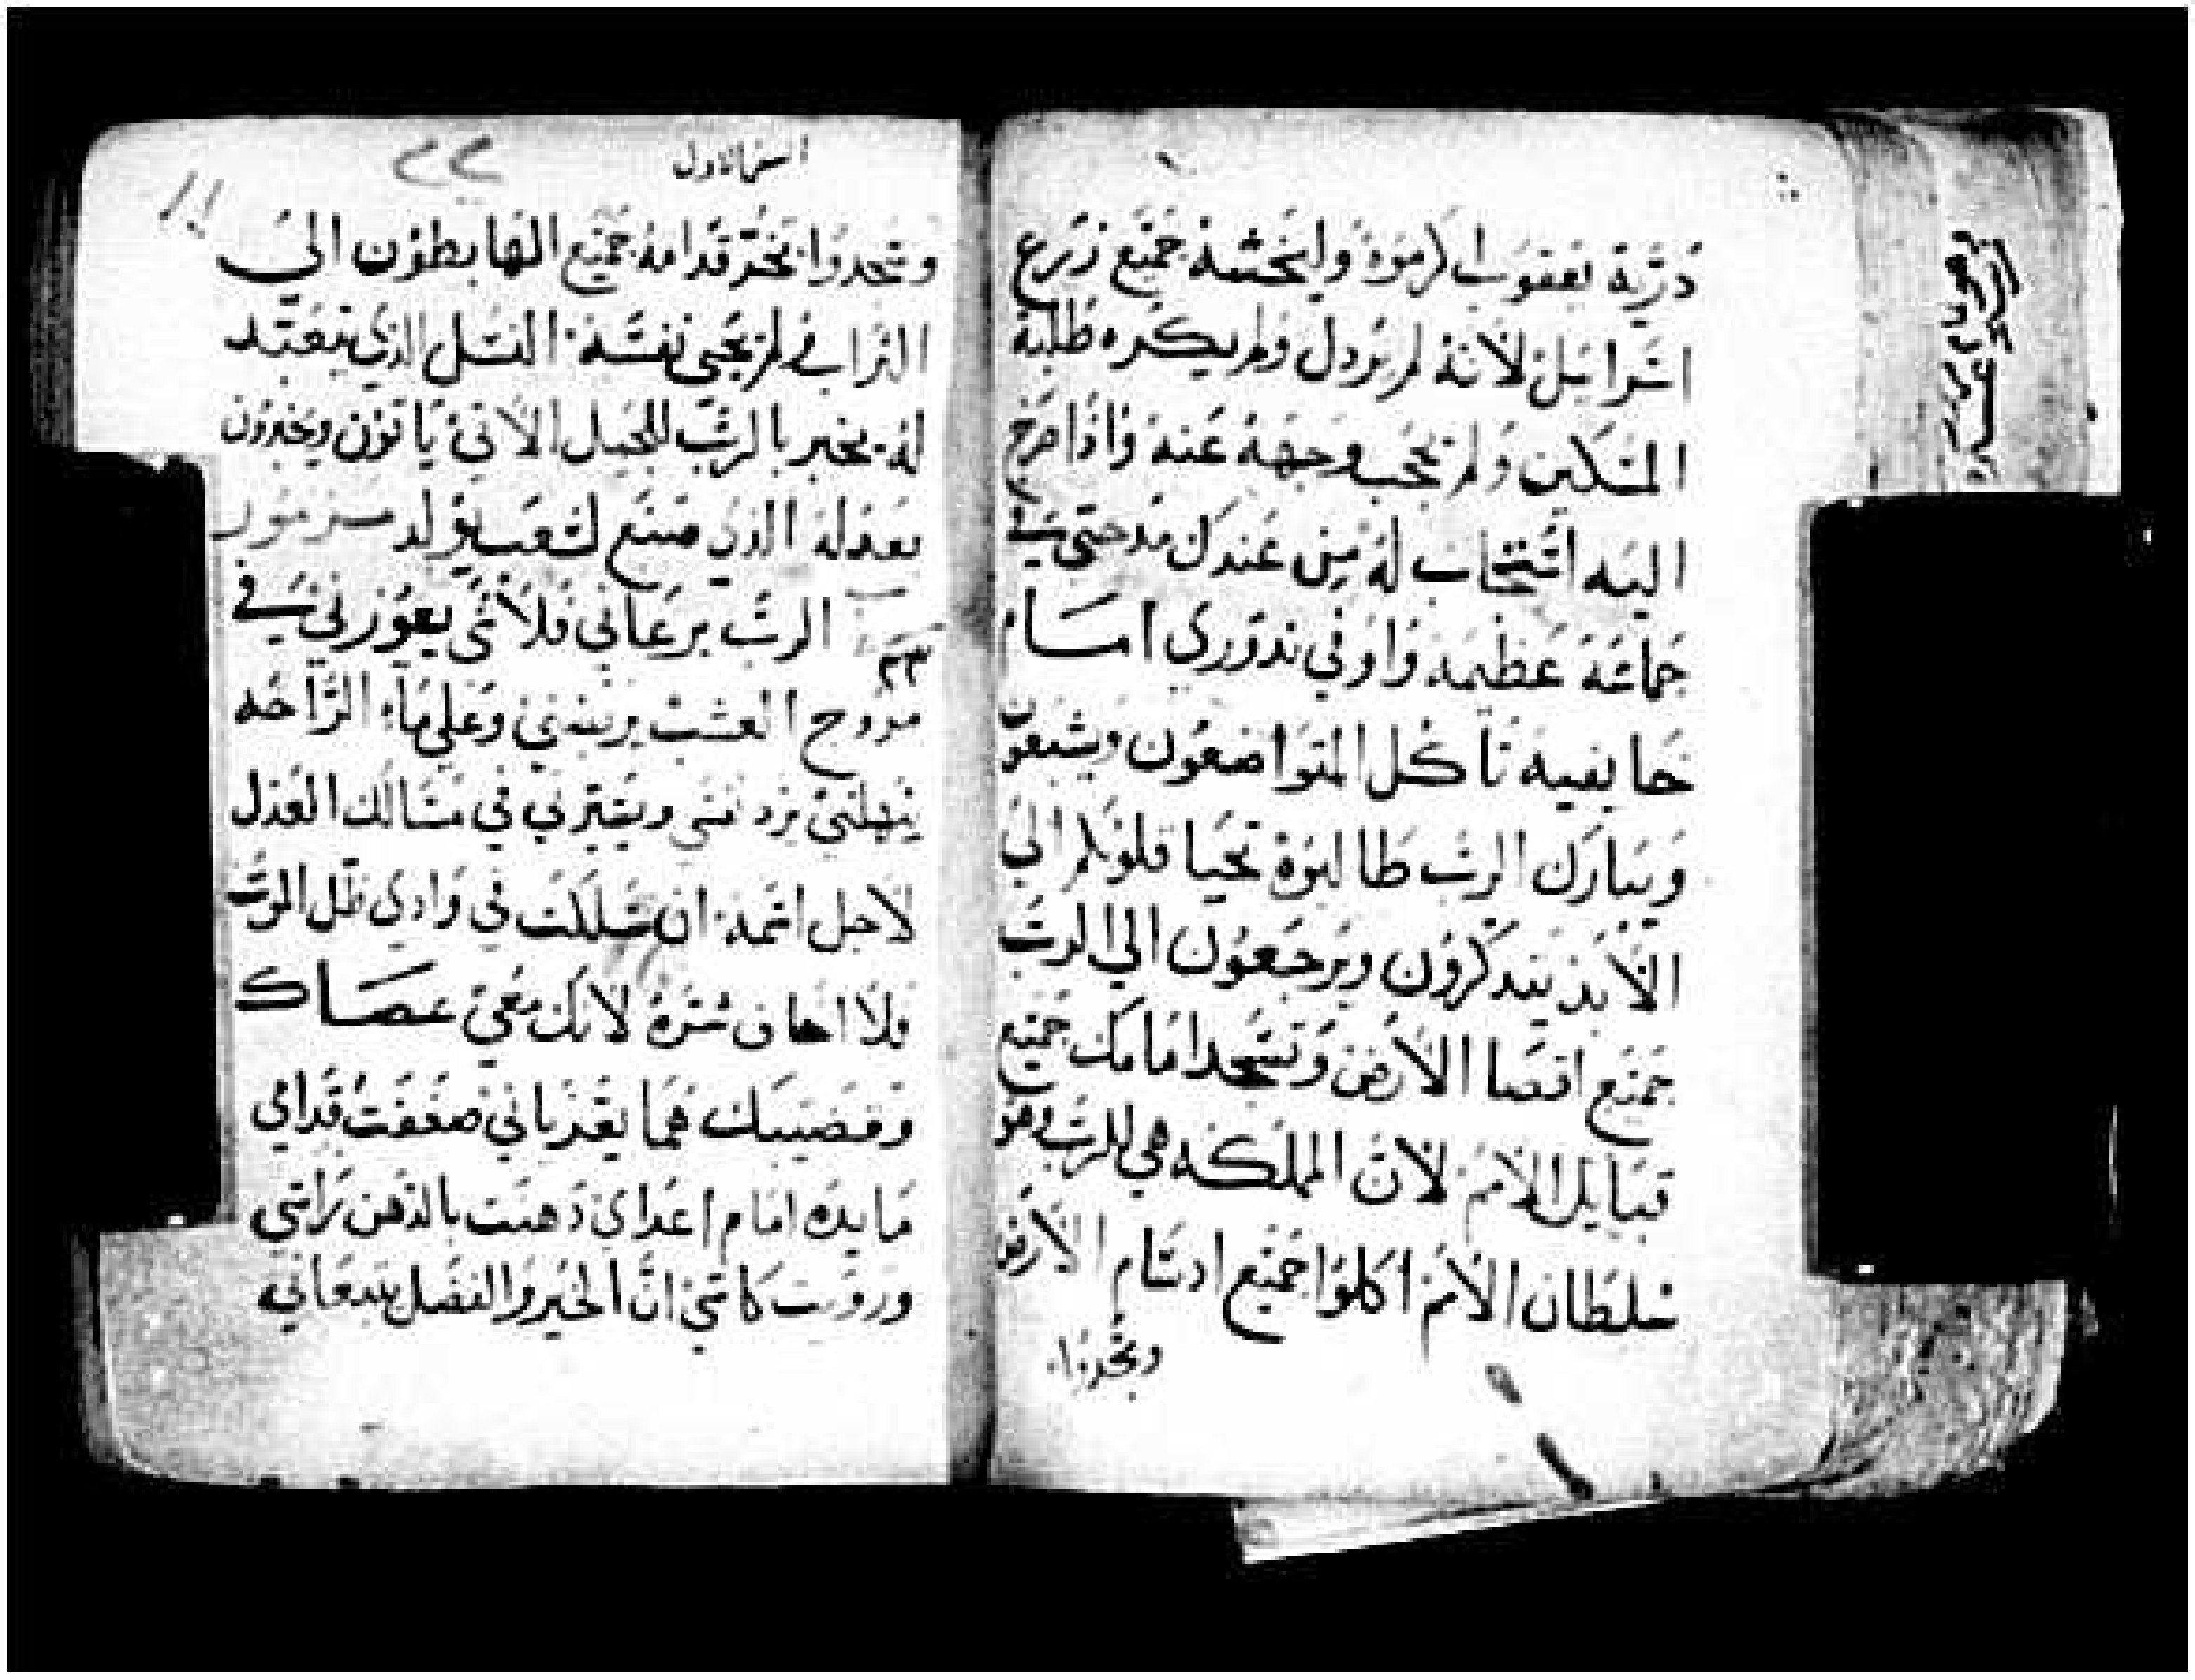 ذرية يعقوب اكرموه وليخشه جميع زرع
اسراييل لانه لم يردل ولم يكره طلبة
المسكين ولم يحجب وجهه عنه واذا صرخ
اليه استجاب له من عندك مدحتي في
جماعة عظيمه واوفي ندوري امام
خايفيه تاكل المتواضعون ويشبعون
ويبارك الرب طالبوه تحيا قلوبكم الي
الابد يتدكرون ويرجعون الي الرب
جميع اقصا الارض وتسجد امامك جميع
قبايل الامم لان المملكه هي للرب وهو
سلطان الامم اكلوا جميع ادسام الارض
وسجدوا
٢٢
وسجدوا يخر قدامه جميع الهابطون الي
التراب لم يحيي نفسه النسل الذي يتعبد
له يخبر بالرب للجيل الاتي ياتون ويخبرون
بعدله الذي صنع لشعب يولد مزمور
الرب يرعاني فلا شي يعوزني في
٢٣
مروج العشب يربضني وعلي ماء الراحه
ينهلني يرد نفسي ويسيرني في مسالك العدل
لاجل اسمه ان سلكت في وادي ظل الموت
فلا اخاف شره لانك معي عصاك
وقضيبك هما يعزياني صففت قدامي
مايده امام اعداي دهنت بالدهن راسي
وروت كاسي ان الخير والفضل يتبعاني